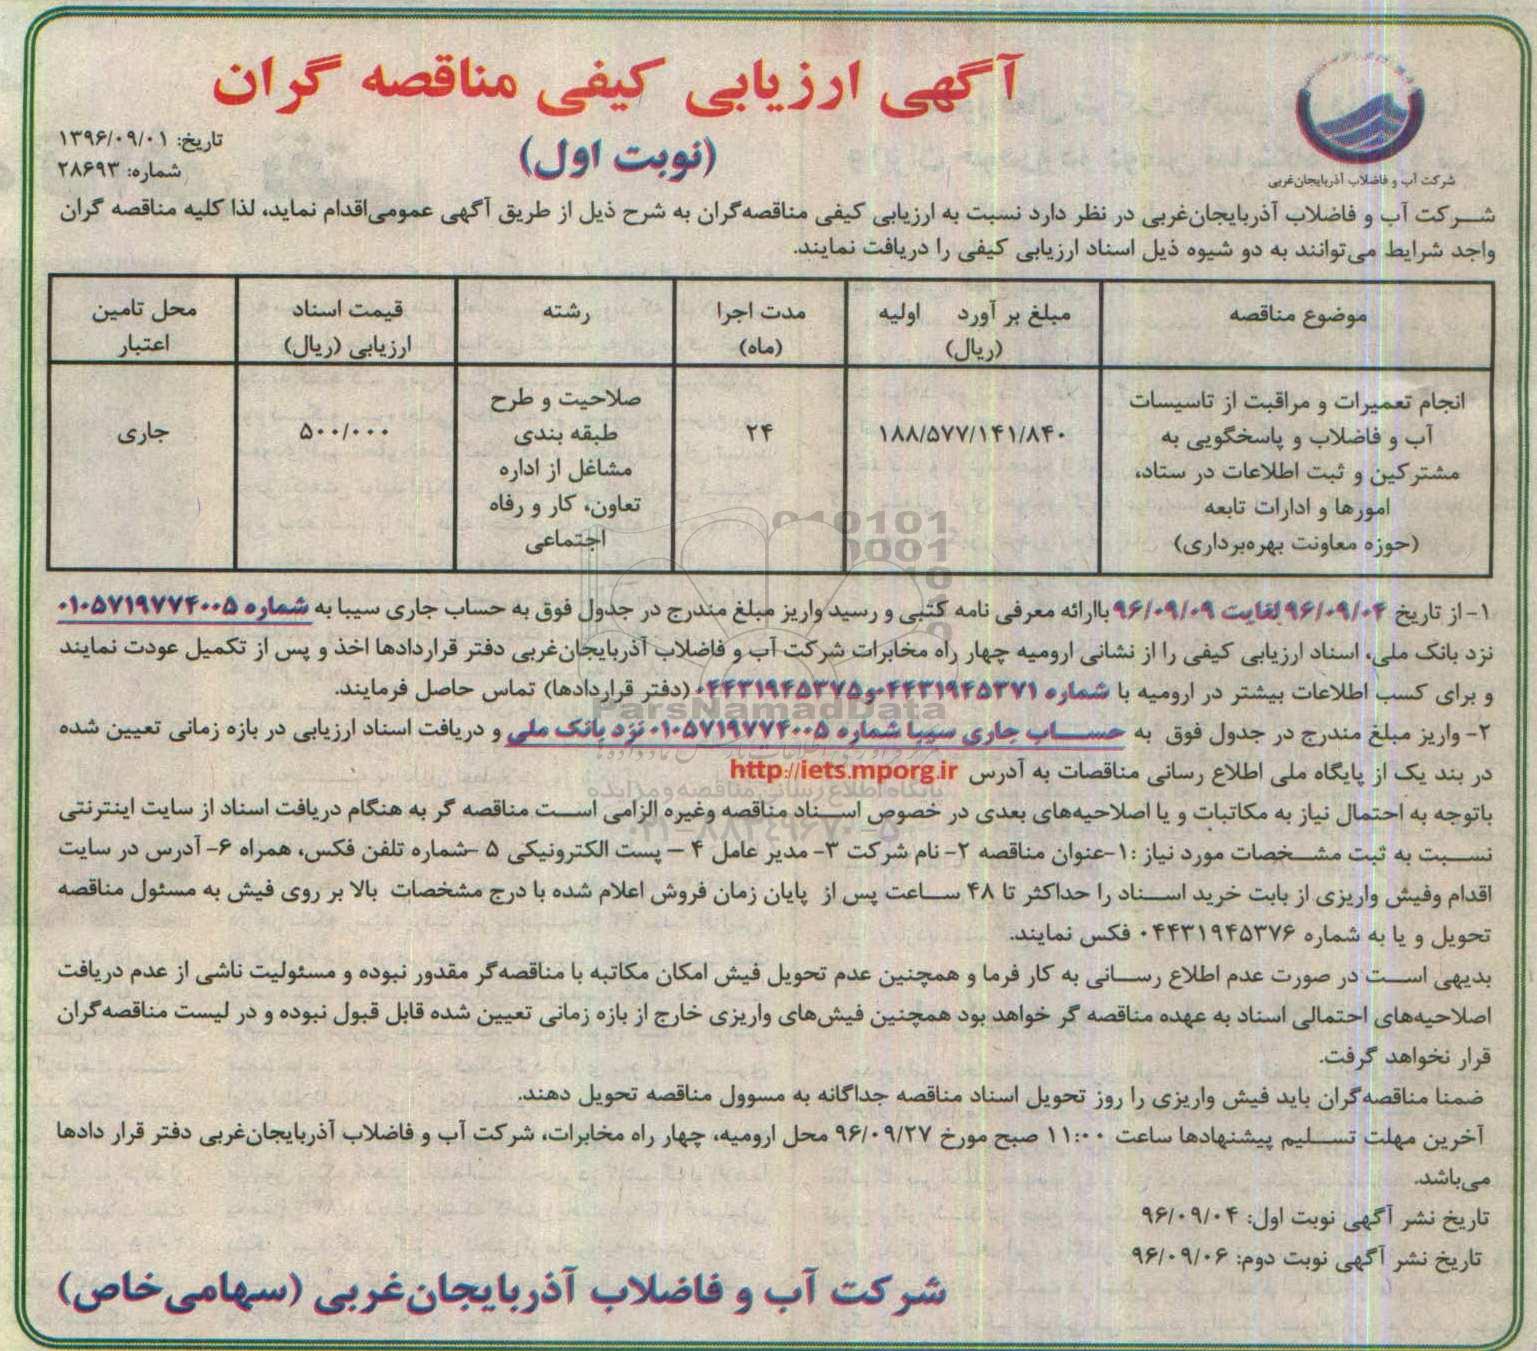 آگهی ارزیابی کیفی مناقصه گران
(نوبت اول)
تاریخ: ۱۳۹۶/۰۹/۰۱
شماره: ۲۸۶۹۳
شرکت آب و فاضلاب آذربایجان‌غربی
شرکت آب و فاضلاب آذربایجان‌غربی در نظر دارد نسبت به ارزیابی کیفی مناقصه‌گران به شرح ذیل از طریق آگهی عمومی‌اقدام نماید، لذا کلیه مناقصه گران
واجد شرایط می‌توانند به دو شیوه ذیل اسناد ارزیابی کیفی را دریافت نمایند.
موضوع مناقصه
مبلغ بر آورد اولیه
(ریال)
مدت اجرا
(ماه)
رشته
قیمت اسناد
ارزیابی (ریال)
محل تامین
اعتبار
انجام تعمیرات و مراقبت از تاسیسات
آب و فاضلاب و پاسخگویی به
مشترکین و ثبت اطلاعات در ستاد،
امورها و ادارات تابعه
(حوزه معاونت بهره‌برداری)
۱۸۸/۵۷۷/۱۴۱/۸۴۰
۲۴
صلاحیت و طرح
طبقه بندی
مشاغل از اداره
تعاون، کار و رفاه
اجتماعی
۵۰۰/۰۰۰
جاری
۱- از تاریخ ۹۶/۰۹/۰۴ لغایت ۹۶/۰۹/۰۹ باارائه معرفی نامه کتبی و رسید واریز مبلغ مندرج در جدول فوق به حساب جاری سیبا به شماره ۰۱۰۵۷۱۹۷۷۴۰۰۵
نزد بانک ملی، اسناد ارزیابی کیفی را از نشانی ارومیه چهار راه مخابرات شرکت آب و فاضلاب آذربایجان‌غربی دفتر قراردادها اخذ و پس از تکمیل عودت نمایند
و برای کسب اطلاعات بیشتر در ارومیه با شماره ۰۴۴۳۱۹۴۵۳۷۱و۰۴۴۳۱۹۴۵۳۷۵ (دفتر قراردادها) تماس حاصل فرمایند.
۲- واریز مبلغ مندرج در جدول فوق به حساب جاری سیبا شماره ۰۱۰۵۷۱۹۷۷۴۰۰۵ نزد بانک ملی و دریافت اسناد ارزیابی در بازه زمانی تعیین شده
در بند یک از پایگاه ملی اطلاع رسانی مناقصات به آدرس http://iets.mporg.ir
باتوجه به احتمال نیاز به مکاتبات و یا اصلاحیه‌های بعدی در خصوص اسناد مناقصه وغیره الزامی است مناقصه گر به هنگام دریافت اسناد از سایت اینترنتی
نسبت به ثبت مشخصات مورد نیاز :۱-عنوان مناقصه ۲- نام شرکت ۳- مدیر عامل ۴ – پست الکترونیکی ۵ -شماره تلفن فکس، همراه ۶- آدرس در سایت
اقدام وفیش واریزی از بابت خرید اسناد را حداکثر تا ۴۸ ساعت پس از پایان زمان فروش اعلام شده با درج مشخصات بالا بر روی فیش به مسئول مناقصه
تحویل و یا به شماره ۰۴۴۳۱۹۴۵۳۷۶ فکس نمایند.
بدیهی است در صورت عدم اطلاع رسانی به کار فرما و همچنین عدم تحویل فیش امکان مکاتبه با مناقصه‌گر مقدور نبوده و مسئولیت ناشی از عدم دریافت
اصلاحیه‌های احتمالی اسناد به عهده مناقصه گر خواهد بود همچنین فیش‌های واریزی خارج از بازه زمانی تعیین شده قابل قبول نبوده و در لیست مناقصه‌گران
قرار نخواهد گرفت.
ضمنا مناقصه‌گران باید فیش واریزی را روز تحویل اسناد مناقصه جداگانه به مسوول مناقصه تحویل دهند.
آخرین مهلت تسلیم پیشنهادها ساعت ۱۱:۰۰ صبح مورخ ۹۶/۰۹/۲۷ محل ارومیه، چهار راه مخابرات، شرکت آب و فاضلاب آذربایجان‌غربی دفتر قرار دادها
می‌باشد.
تاریخ نشر آگهی نوبت اول: ۹۶/۰۹/۰۴
تاریخ نشر آگهی نوبت دوم: ۹۶/۰۹/۰۶
شرکت آب و فاضلاب آذربایجان‌غربی (سهامی‌خاص)
ParsNamadData
پایگاه اطلاع رسانی مناقصه و مزایده
۰۲۱-۸۸۳۴۹۶۷۰-۵